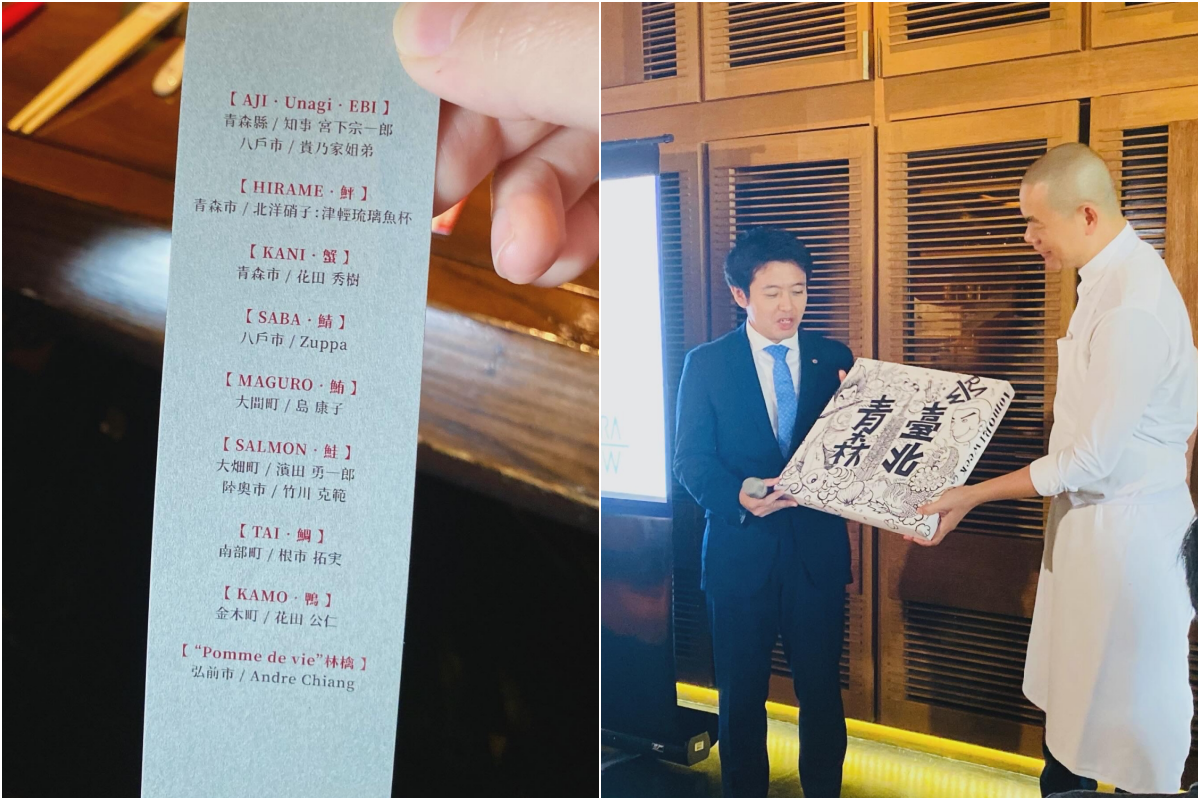 【 AJI · Unagi · EBI 】
青森縣 / 知事 宮下宗一郎
八戶市 / 貴乃家姐弟
【 HIRAME · 鮃 】
青森市 / 北洋硝子:津輕琉璃魚杯
【 KANI · 蟹 】
青森市 / 花田 秀樹
【 SABA · 鯖 】
八戶市 / Zuppa
【 MAGURO · 鮪 】
大間町 / 島 康子
【 SALMON · 鮭 】
大畑町 / 濱田 勇一郎
陸奧市 / 竹川 克範
【 TAI · 鯛 】
南部町 / 根市 拓実
【 KAMO · 鴨 】
金木町 / 花田 公仁
【 “Pomme de vie”林檎 】
弘前市 / Andre Chiang
臺北
青森